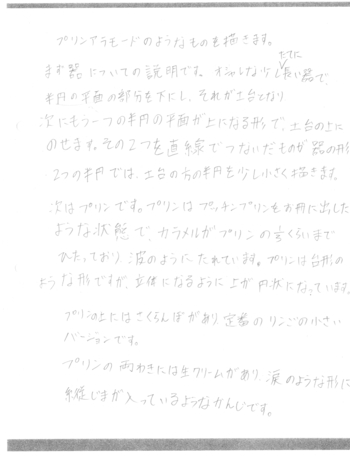 プリンアラモードのようなものを描きます。
まず器についての説明です。オシャレな少したてに長い器で、
半円の平面の部分を下にし、それが土台となり
次にもう一つの半円の平面が上になる形で、土台の上に
のせます。その2つを直線でつないだものが器の形
2つの半円では、土台の方の半円を少し小さく描きます。
次はプリンです。プリンはプッチンプリンをお皿に出した
ような状態で、カラメルがプリンの くらいまで
かかっており、波のようにたれています。プリンは台形の
ような形ですが、立体になるように上が円状になっています。
プリンの上にはさくらんぼがあり、定番のりんごの小さい
バージョンです。
プリンの両わきには生クリームがあり、涙のような形に
縦じまが入っているようなかんじです。